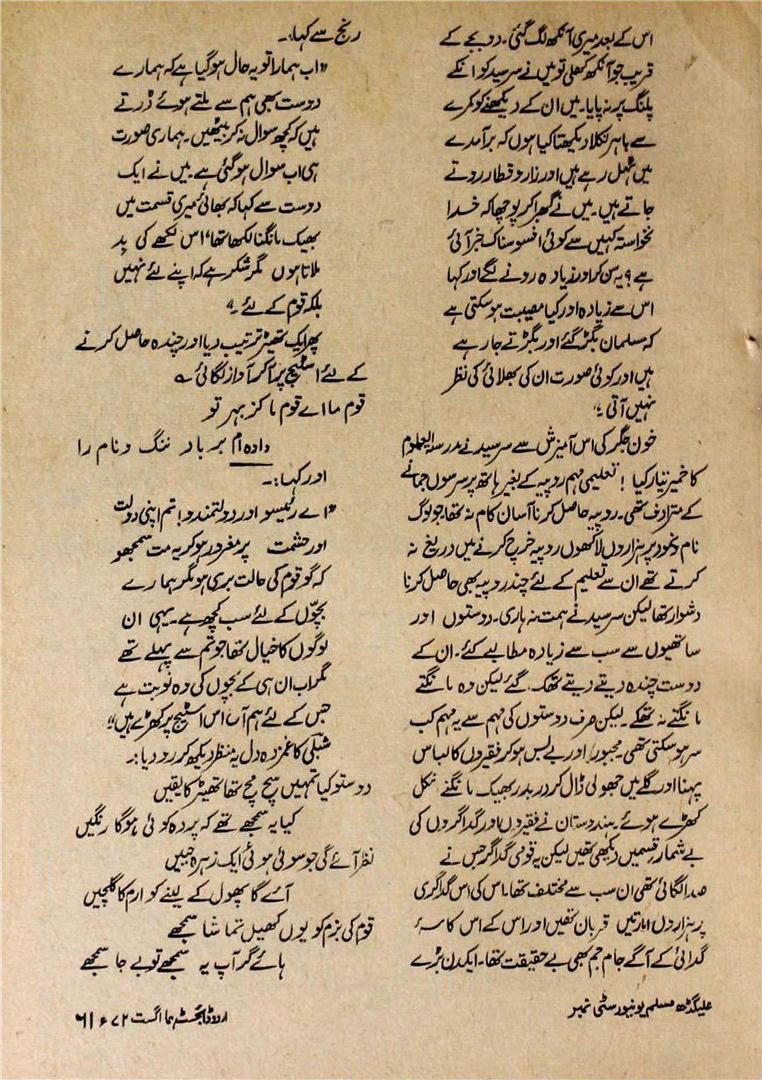 اس کے بعد میری آنکھ لگ گئی۔ دو بجے کے
قریب جو آنکھ کھلی تو میں نے سرسید کو انکے
پلنگ پر نہ پایا۔ میں ان کے دیکھنے کو کمرے
سے باہر نکلا دیکھتا کیا ہوں کہ برآمدے
میں ٹہل رہے ہیں اور زار و قطار روتے
جاتے ہیں۔ میں نے گھبرا کر پوچھا کہ خدا
نخواستہ کہیں سے کوئی افسوسناک خبر آئی
ہے؟ یہ سن کر اور زیادہ رونے لگے اور کہا
اس سے زیادہ اور کیا مصیبت ہو سکتی ہے
کہ مسلمان بگڑ گئے اور بگڑتے جا رہے
ہیں اور کوئی صورت ان کی بھلائی کی نظر
نہیں آتی"
خون جگر کی اس آمیزش سے سرسید نے مدرسۃ العلوم
کا خمیر تیار کیا! تعلیمی مہم روپیہ کے بغیر ہاتھ پر سرسوں جمانے
کے مترادف تھی۔ روپیہ حاصل کرنا آسان کام نہ تھا جو لوگ
نام و نمود پر ہزاروں لاکھوں روپیہ خرچ کرنے میں دریغ نہ
کرتے تھے ان سے تعلیم کے لئے چند روپیہ بھی حاصل کرنا
دشوار تھا لیکن سرسید نے ہمت نہ ہاری۔ دوستوں اور
ساتھیوں سے سب سے زیادہ مطالبے کئے۔ ان کے
دوست چندہ دیتے دیتے تھک گئے لیکن وہ مانگتے
مانگتے نہ تھکے۔ لیکن صرف دوستوں کی مہم سے یہ مہم کب
سر ہو سکتی تھی۔ مجبور اور بے بس ہو کر فقیروں کا لباس
پہنا اور گلے میں جھولی ڈال کر در بدر بھیک مانگنے نکل
کھڑے ہوئے۔ ہندوستان نے فقیروں اور گداگروں کی
بے شمار قسمیں دیکھی تھیں لیکن یہ قومی گداگر جس نے
صدا لگائی تھی ان سب سے مختلف تھا۔ اس کی اس گداگری
پر ہزاروں امارتیں قربان تھیں اور اس کے اس کاسۂ
گدائی کے آگے جام جم بھی بے حقیقت تھا۔ ایک دن بڑے
رنج سے کہا:۔
"اب ہمارا تو یہ حال ہو گیا ہے کہ ہمارے
دوست بھی ہم سے ملتے ہوئے ڈرتے
ہیں کہ کچھ سوال نہ کر بیٹھیں۔ ہماری صورت
ہی اب سوال ہو گئی ہے میں نے ایک
دوست سے کہا کہ بھائی میری قسمت میں
بھیک مانگنا لکھا تھا، اس لکھے کی بِد
ملاتا ہوں مگر شکر ہے کہ اپنے لئے نہیں
بلکہ قوم کے لئے۔"
پھر ایک تھیٹر ترتیب دیا اور چندہ حاصل کرنے
کے لئے اسٹیج پر آ کر آواز لگائی ؎
قوم ما اے قوم ما کز بہر تو
دادہ ام برباد ننگ و نام را
اور کہا:۔
"اے رئیسو اور دولتمندو! تم اپنی دولت
اور حشمت پر مغرور ہو کر یہ مت سمجھو
کہ گو قوم کی حالت بری ہو مگر ہمارے
بچوں کے لئے سب کچھ ہے۔ یہی ان
لوگوں کا خیال تھا جو تم سے پہلے تھے
مگر اب ان ہی کے بچوں کی وہ نوبت ہے
جس کے لئے ہم آپ اس اسٹیج پر کھڑے ہیں"
شبلی کا غمزدہ دل یہ منظر دیکھ کر رو دیا:۔
دوستو کیا تمہیں سچ مچ تھا تھیٹر کا یقیں
کیا یہ سمجھے تھے کہ پردہ کوئی ہوگا رنگیں
نظر آئے گی جو سوئی ہوئی ایک زہرہ جبیں
آئے گا پھول کے لینے کو ارم کا گلچیں
قوم کی بزم کو یوں کھیل تماشا سمجھے
ہائے گر آپ یہ سمجھے تو بے جا سمجھے
علیگڈھ مسلم یونیورسٹی نمبر
اردو ڈائجسٹ ہما اگست ۷۲ء ۶۱